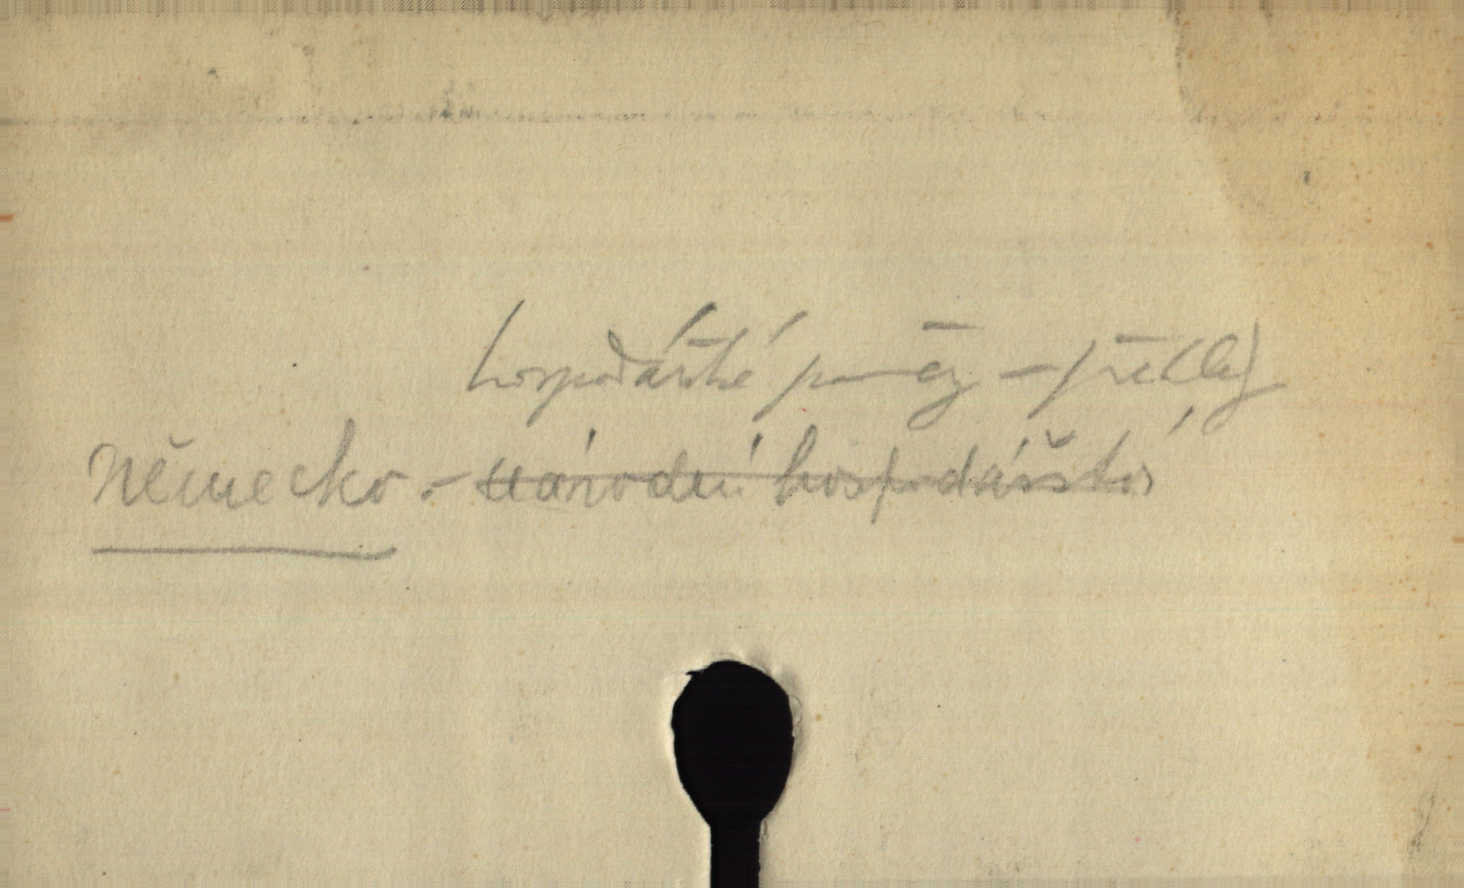 hospodářské poměry - přehledy
Německo. - národní hospodářství